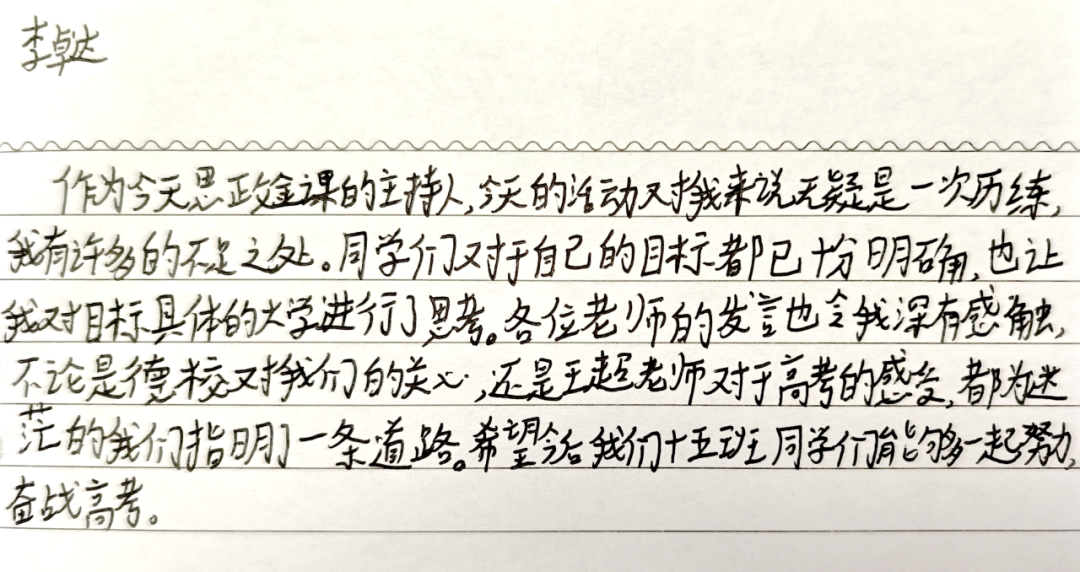 李卓达
作为今天思政金课的主持人,今天的活动对我来说无疑是一次历练,
我有许多的不足之处。同学们对于自己的目标都已十分明确,也让
我对目标具体的大学进行了思考。各位老师的发言也令我深有感触,
不论是德校对我们的关心,还是王超老师对于高考的感受,都为迷
茫的我们指明了一条道路。希望今后我们十五班同学们能够一起努力,
奋战高考。